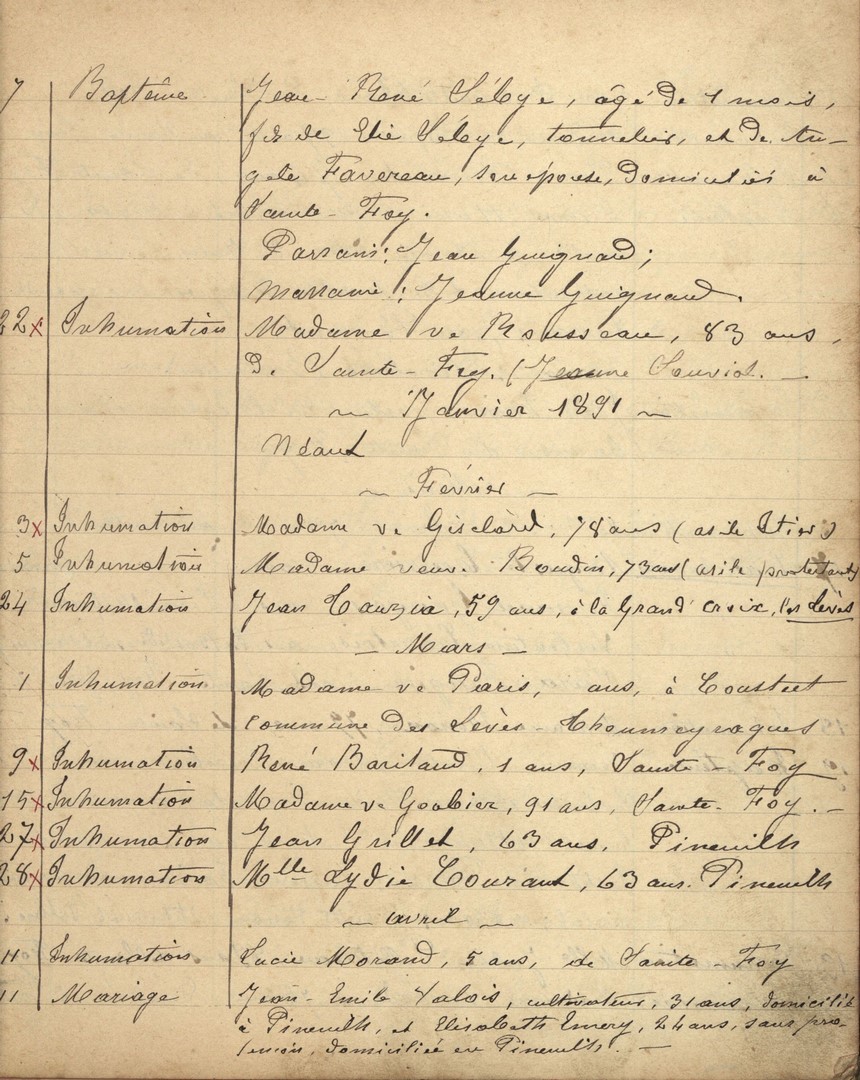 7 Baptême Jean-René Séloye, âgé de 1 mois,
fils de Elie Séloye, tonnelier, et de An-
gele Favereau, son épouse, domiciliés à
Sainte-Foy.
Parrain: Jean Guignard;
Marraine: Jeanne Guignard.
22x Inhumation Madame ve Rousseau, 83 ans,
D. Sainte-Foy. (Jeanne
~ Janvier 1891 ~
Néant
~ Février —
3x Inhumation Madame ve 78 ans (asile
5 Inhumation Madame veuve Boudin, 73 ans (asile protestant)
24 Inhumation Jean Tauzia, 59 ans, à la Grand' croix, les Lèves
— Mars —
1 Inhumation Madame ve Paris, ans, à
commune des Lèves-Thoumeyragues
9x Inhumation René Baritaud, 1 ans, Sainte-Foy
15x Inhumation Madame ve 91 ans, Sainte-Foy. —
27x Inhumation Jean Grillet, 63 ans, Pineuilh
28x Inhumation Mlle Lydie 63 ans. Pineuilh
~ avril ~
11 Inhumation Lucie Morand, 5 ans, de Sainte-Foy
11 Mariage Jean-Emile Valois, cultivateur, 31 ans, domicilié
à Pineuilh, et Elisabeth Emery, 24 ans, sans pro-
fession, domiciliée en Pineuilh. —